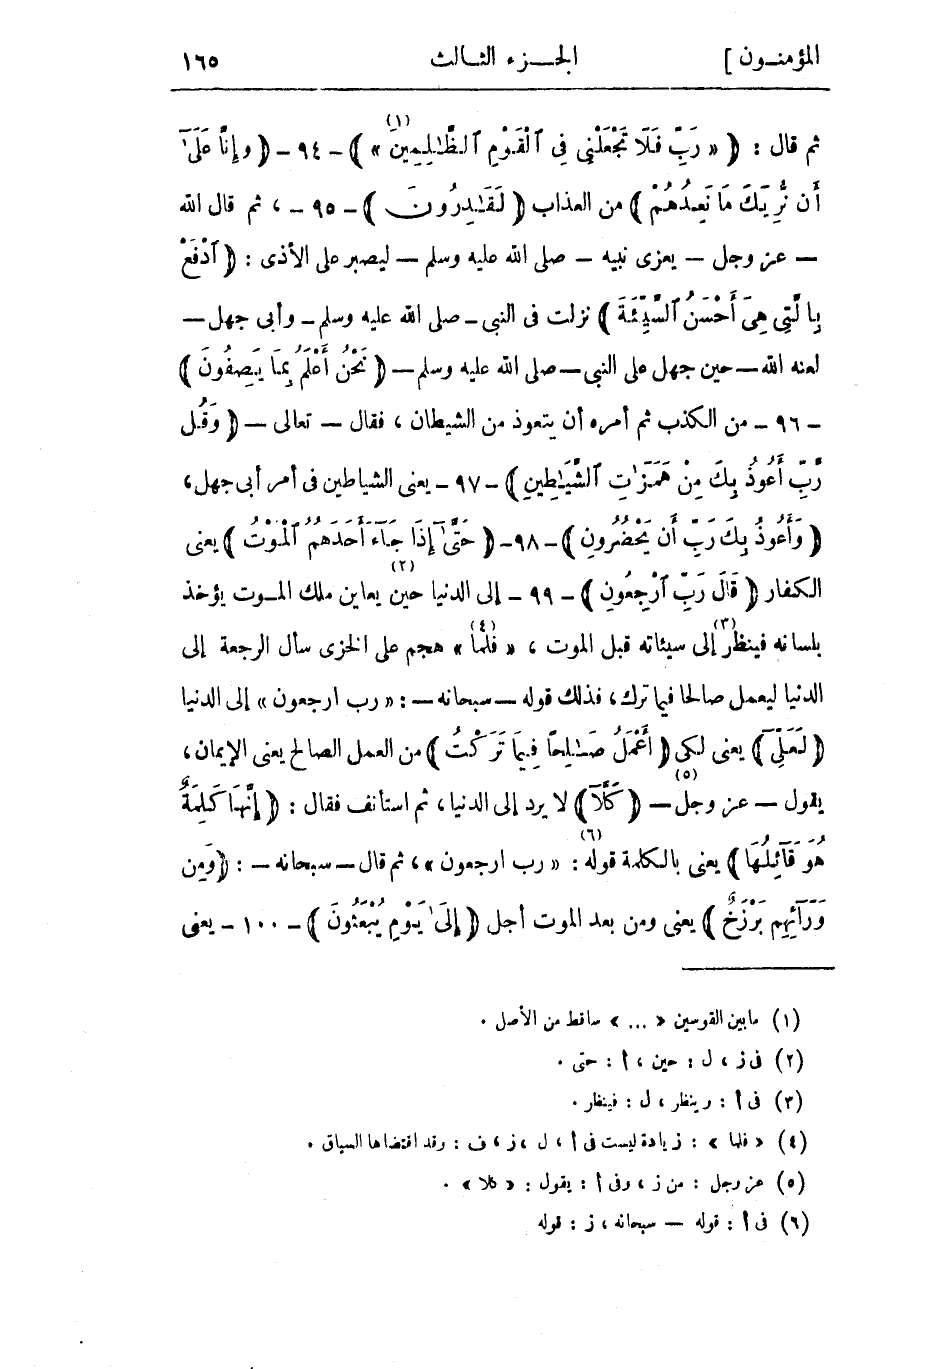 المؤمنـون ]
الجـــزء الثالـث
١٦٥
ثم قال : ( « رَبِّ فَلَا تَجْعَلْنِي فِي ٱلْقَوْمِ ٱلظَّـٰلِمِينَ(١) » ) – ٩٤ – ( وَإِنَّا عَلَىٰٓ
أَن نُّرِيَكَ مَا نَعِدُهُمْ ) من العذاب ( لَقَـٰدِرُونَ ) – ٩٥ – ، ثم قال الله
— عز وجل — يعزى نبيه — صلى الله عليه وسلم — ليصبر على الأذى : ( ٱدْفَعْ
بِٱلَّتِي هِيَ أَحْسَنُ ٱلسَّيِّئَةَ ) نزلت فى النبى – صلى الله عليه وسلم – وأبى جهل —
لعنه الله — حين جهل على النبى — صلى الله عليه وسلم — ( نَحْنُ أَعْلَمُ بِمَا يَصِفُونَ )
– ٩٦ – من الكذب ثم أمره أن يتعوذ من الشيطان ، فقال — تعالى — ( وَقُل
رَّبِّ أَعُوذُ بِكَ مِنْ هَمَزَٰتِ ٱلشَّيَـٰطِينِ ) – ٩٧ – يعنى الشياطين فى أمر أبى جهل ،
( وَأَعُوذُ بِكَ رَبِّ أَن يَحْضُرُونِ ) – ٩٨ – ( حَتَّىٰٓ إِذَا جَآءَ أَحَدَهُمُ ٱلْمَوْتُ ) يعنى
الكفار ( قَالَ رَبِّ ٱرْجِعُونِ ) – ٩٩ – إلى الدنيا حين(٢) يعاين ملك المـوت يؤخذ
بلسانه فينظر(٣) إلى سيئاته قبل الموت ، « فلما(٤) » هجم على الخزى سأل الرجعة إلى
الدنيا ليعمل صالحا فيما ترك ، فذلك قوله — سبحانه — : « رب ارجعون » إلى الدنيا
( لَعَلِّيٓ ) يعنى لكى ( أَعْمَلُ صَـٰلِحًا فِيمَا تَرَكْتُ ) من العمل الصالح يعنى الإيمان ،
يقول — عز وجل(٥) — ( كَلَّآ ) لا يرد إلى الدنيا ، ثم استأنف فقال : ( إِنَّهَا كَلِمَةٌ
هُوَ قَآئِلُهَا ) يعنى بالكلمة قوله(٦) : « رب ارجعون » ، ثم قال — سبحانه — : ( وَمِن
وَرَآئِهِم بَرْزَخٌ ) يعنى ومن بعد الموت أجل ( إِلَىٰ يَوْمِ يُبْعَثُونَ ) – ١٠٠ – يعنى
(١) ما بين القوسين « ... » ساقط من الأصل .
(٢) فى ز ، ل : حين ، أ : حتى .
(٣) فى أ : وينظر ، ل : فينظر .
(٤) « فلما » : زيادة ليست فى أ ، ل ، ز ، ف : وقد اقتضاها السياق .
(٥) عز وجل : من ز ، وفى أ : يقول : « كلا » .
(٦) فى أ : قوله — سبحانه ، ز : قوله